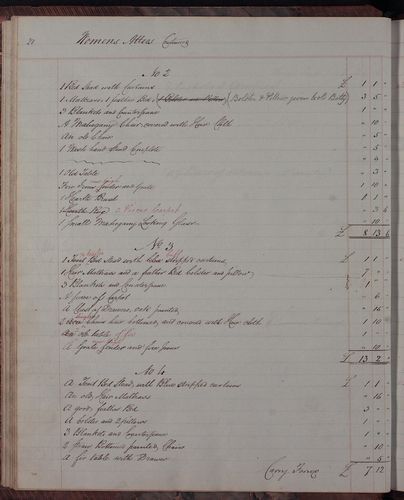 21 Womens Attics
No 2
1 Bed Stead with Curtains £ 1 1 -
1 Mattrass 1 feather Bed (Bolster & Pillow given to Betty) 3 5 -
3 Blankets and Counterpane 1 -
A Mahogany Chair covered with Hair Cloth - 10 -
An old Chair - 5 -
1 Wash hand Stand Complete - 5 -
1 Old Table - 3 -
Fire Irons fender and 1 10 -
1 Hearth Brush 1 -
1 Hearth Rug - 3 6
1 Small Mahogany Looking Glass - 10 -
£ 8 13 6
No 3
1 Tent Bed Stead with blue stripped curtains £ 1 1 -
1 Hair Mattrass and a feather Bed bolster and pillow 7 - -
3 Blankets and Counterpane 1 -
A piece of Carpet - 6 -
A of Drawers, oak painted - 16 -
2 Chairs hair bottomed, and covered with Hair cloth 1 10 -
table of fir
A Grate fender and fire Irons - 10 -
£ 13 2 -
No 4
A Tent Bed Stead, with Blue stripped curtains £ 1 1 -
An old Hair Mattrass - 16 -
A good feather Bed 3 - -
A bolster and 2 pillows 1 -
3 Blankets and Counterpane 1 -
2 Bottomed painted Chairs - 10 -
A fir table with Drawer - 5 -
Carry £ 7 12